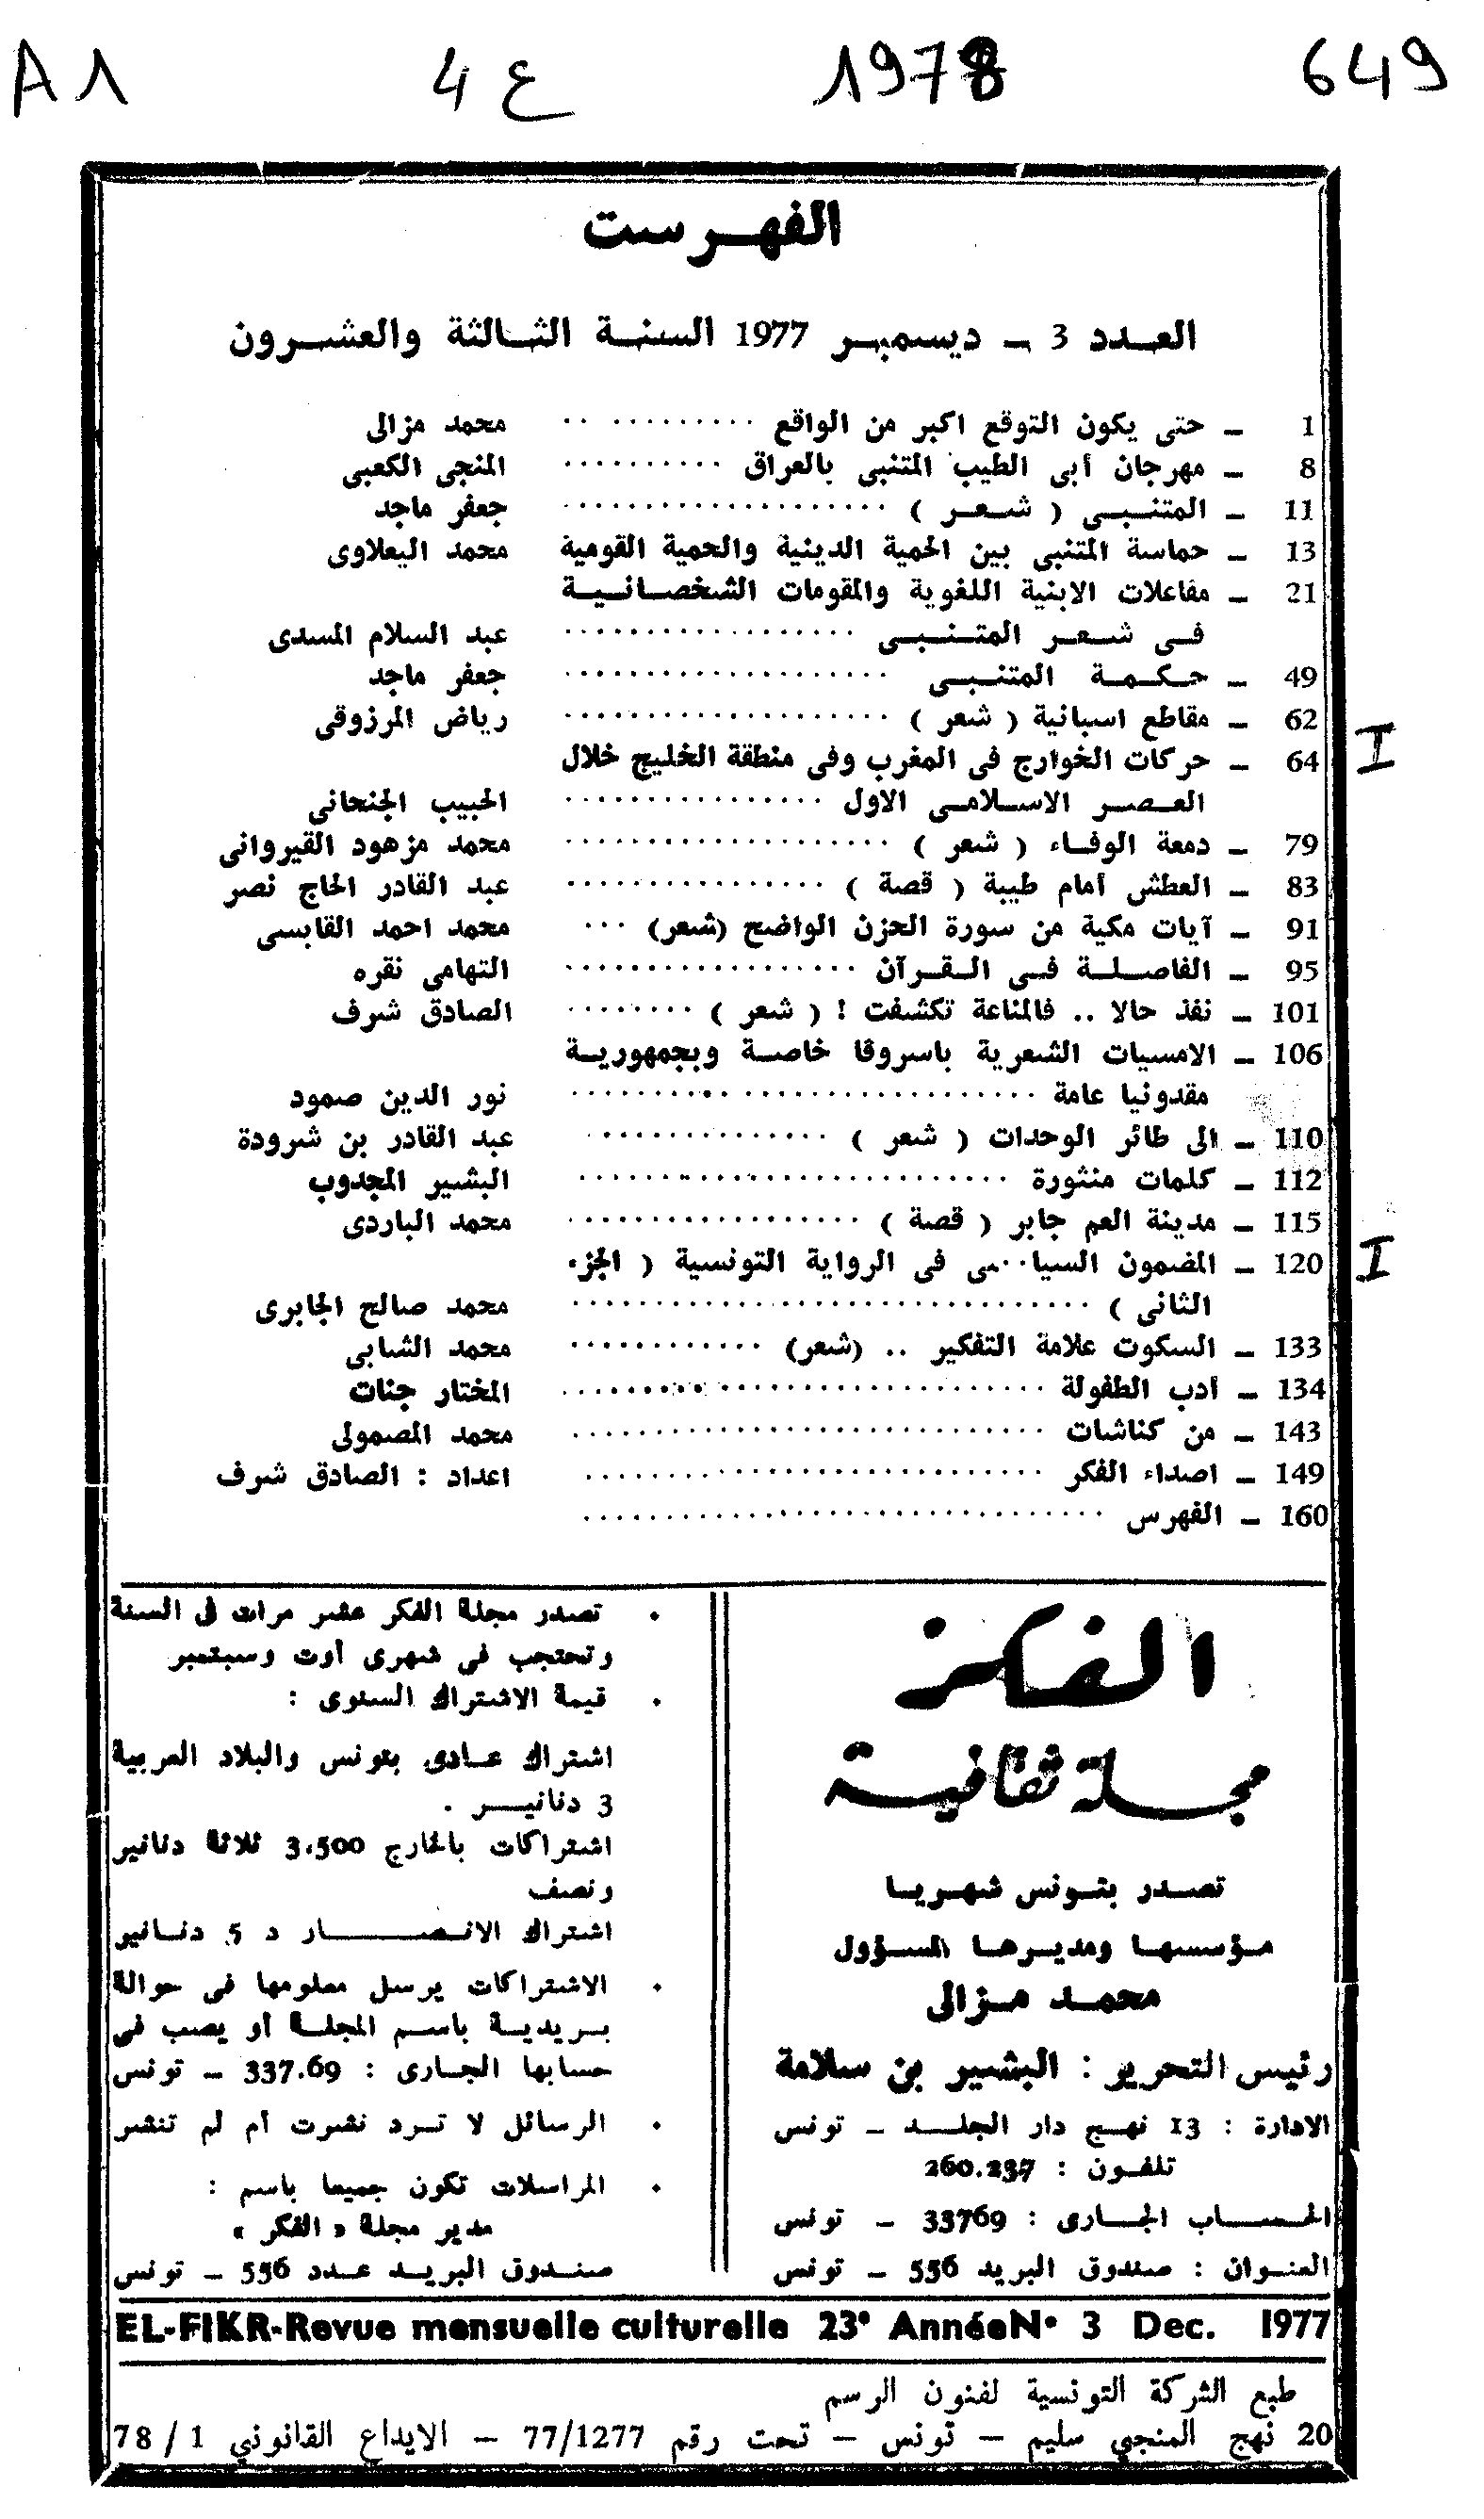 A1 4 ع 1978 649
الفهرست
العدد 3 ـ ديسمبر 1977 السنة الثالثة والعشرون
1 ـ حتى يكون التوقع اكبر من الواقع ............ محمد مزالى
8 ـ مهرجان أبى الطيب المتنبى بالعراق .......... المنجى الكعبى
11 ـ المتنبى ( شعر ) .................... جعفر ماجد
13 ـ حماسة المتنبى بين الحمية الدينية والحمية القومية محمد اليعلاوى
21 ـ مفاعلات الابنية اللغوية والمقومات الشخصانية
فى شعر المتنبى .................. عبد السلام المسدى
49 ـ حكمة المتنبى .................... جعفر ماجد
62 ـ مقاطع اسبانية ( شعر ) .................... رياض المرزوقى
64 ـ حركات الخوارج فى المغرب وفى منطقة الخليج خلال I
العصر الاسلامى الاول ................ الحبيب الجنحانى
79 ـ دمعة الوفاء ( شعر ) .................... محمد مزهود القيروانى
83 ـ العطش أمام طيبة ( قصة ) ................ عبد القادر الحاج نصر
91 ـ آيات مكية من سورة الحزن الواضح (شعر) ... محمد احمد القابسى
95 ـ الفاصلة فى القرآن .................. التهامى نقره
101 ـ نفذ حالا .. فالمناعة تكشفت ! ( شعر ) ........ الصادق شرف
106 ـ الامسيات الشعرية باسروقا خاصة وبجمهورية
مقدونيا عامة ............................. نور الدين صمود
110 ـ الى طائر الوحدات ( شعر ) ............... عبد القادر بن شرودة
112 ـ كلمات منثورة ........................... البشير المجدوب
115 ـ مدينة العم جابر ( قصة ) .................. محمد الباردى
120 ـ المضمون السيا..سى فى الرواية التونسية ( الجزء I
الثانى ) ................................ محمد صالح الجابرى
133 ـ السكوت علامة التفكير .. (شعر) ............ محمد الشابى
134 ـ أدب الطفولة .............................. المختار جنات
143 ـ من كناشات ............................. محمد المصمولى
149 ـ اصداء الفكر ............................. اعداد : الصادق شرف
160 ـ الفهرس ................................
الفكر
مجلة ثقافية
تصدر بتونس شهريا
مؤسسها ومديرها المسؤول
محمد مزالى
رئيس التحرير : البشير بن سلامة
الادارة : 13 نهج دار الجلد ـ تونس
تلفون : 260.237
الحساب الجارى : 33769 ـ تونس
العنوان : صندوق البريد 556 ـ تونس
• تصدر مجلة الفكر عشر مرات فى السنة
وتحتجب فى شهرى أوت وسبتمبر
• قيمة الاشتراك السنوى :
اشتراك عادى بتونس والبلاد العربية
3 دنانير .
اشتراكات بالخارج 3،500 ثلاثة دنانير
ونصف
اشتراك الانصار د 5 دنانير
• الاشتراكات يرسل معلومها فى حوالة
بريدية باسم المجلة أو يصب فى
حسابها الجارى : 337.69 ـ تونس
• الرسائل لا ترد نشرت أم لم تنشر
• المراسلات تكون جميعا باسم :
مدير مجلة « الفكر »
صندوق البريد عدد 556 ـ تونس
EL-FIKR-Revue mensuelle culturelle 23° AnnéeN° 3 Dec. 1977
طبع الشركة التونسية لفنون الرسم
20 نهج المنجي سليم ـ تونس ـ تحت رقم 77/1277 ـ الايداع القانوني 1 / 78